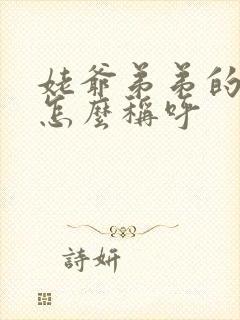 姥爺弟弟的
怎麼稱呼
詩妍